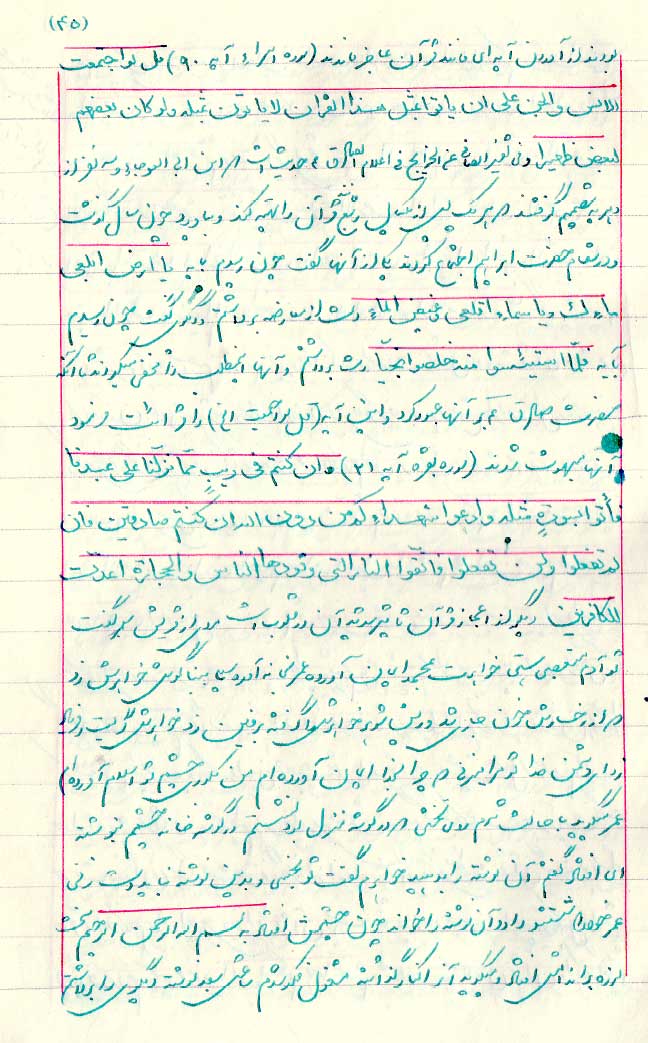 (۴۵)
بودند از آوردن آیه ای مانند قرآن عاجز ماندند (سوره اسراء آیه ۹۰) قل لو اجتمعت
الانس والجن علی ان یاتوا بمثل هذا القران لا یاتون بمثله ولو کان بعضهم
لبعض ظهیرا وفی تفسیر الصافی عن الخرایج فی اعلام الصادق ع حدیث است که ابن ابی العوجاء و سه نفر از
دهریه تصمیم گرفتند که هر یک پس از یکسال ربع قرآن را تهیه کند و بیاورد چون سال گذشت
و در مقام حضرت ابراهیم اجتماع کردند یکی از آنها گفت چون رسیدم بآیه یا ارض ابلعی
ماءک ویا سماء اقلعی وغیض الماء دست از معارضه برداشتم دیگری گفت چون رسیدم
بآیه فلما استیئسوا منه خلصوا نجیا دست برداشتم و آنها اینمطلب را مخفی میکردند تا آنکه
حضرت صادق ع بر آنها عبور کرد و این آیه (قل لو اجتمعت الخ) را قرائت فرمود
آنها مبهوت شدند (سوره بقره آیه ۲۱) وان کنتم فی ریب مما نزلنا علی عبدنا
فأتوا بسورة مثله وادعوا شهداءکم من دون الله ان کنتم صادقین فان
لم تفعلوا ولن تفعلوا فاتقوا النار التی وقودها الناس والحجارة اعدت
للکافرین دیگر از اعجاز قرآن تاثیر آن در قلوب است مردی از قریش بعمر گفت
تو آدم متعصبی هستی خواهرت بمحمد ایمان آورده عمر بخانه آمده سیلی بناگوش خواهرش زد
که از رخسارش خون جاری شد و ریش شوهر خواهرش را گرفته بر زمین زد خواهرش گریست و فریاد
زد ای دشمن خدا تو مرا میزنی که چرا بخدا ایمان آورده ام من بکوری چشم تو اسلام آورده ام
عمر میگوید با حالت شرم روی تختی که در گوشه منزل بود نشستم در گوشه خانه چشمم بنوشته
ای افتاد گفتم آن نوشته را بدهید خواهرم گفت تو نجسی و بدین نوشته نباید دست زنی
عمر خود را شستشو داد و آن نوشته را خواند چون چشمش افتاد به بسم الله الرحمن الرحیم سخت
لرزه براندامش افتاد و میگوید آنرا کنار گذاشته مشغول فکر شدم ساعتی بعد نوشته دیگری را برداشتم